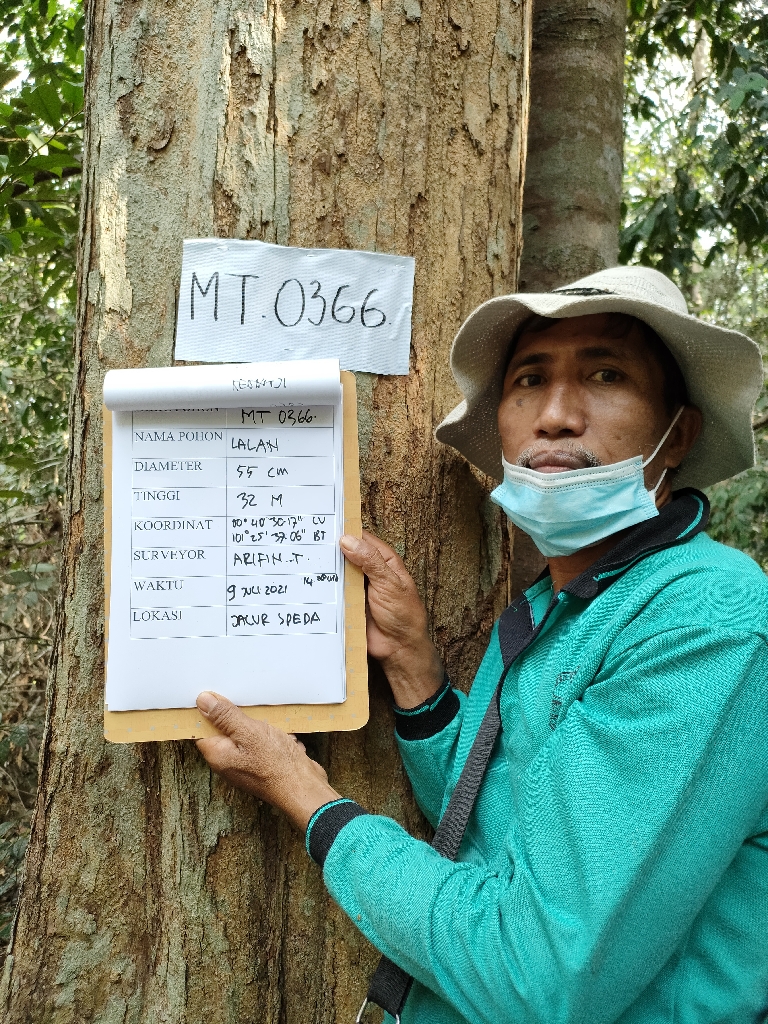 MT. 0366.
MT 0366.
NAMA POHON LALAN
DIAMETER 55 CM
TINGGI 32 M
KOORDINAT 00° 40' 30.17" LU
101° 25' 37.06" BT
SURVEYOR ARIFIN..T.
WAKTU 9 JULI 2021 14
LOKASI JALUR SPEDA